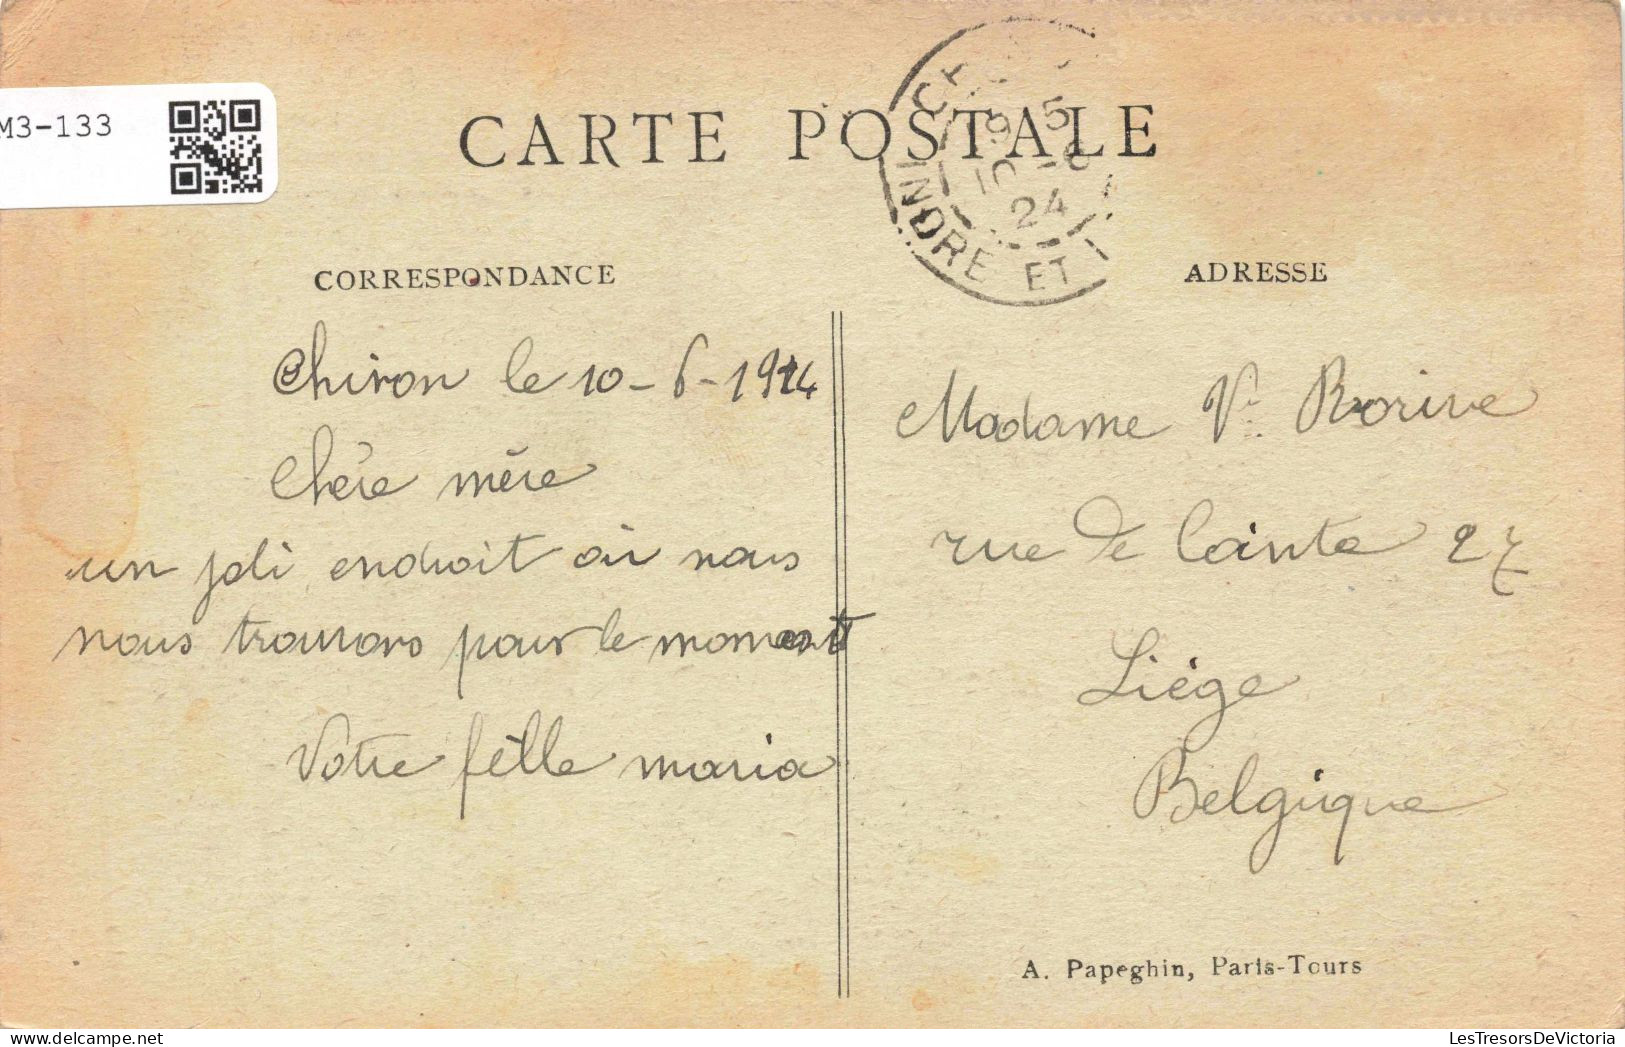 M3-133
CARTE POSTALE
INDRE ET
24
CORRESPONDANCE
ADRESSE
Chinon le 10-6-1924
Chère mère
un joli endroit où nous
nous trouvons pour le moment
Votre fille maria
Madame Ve Rorive
rue de Cointe 27
Liège
Belgique
A. Papeghin, Paris-Tours
LesTresorsDeVictoria